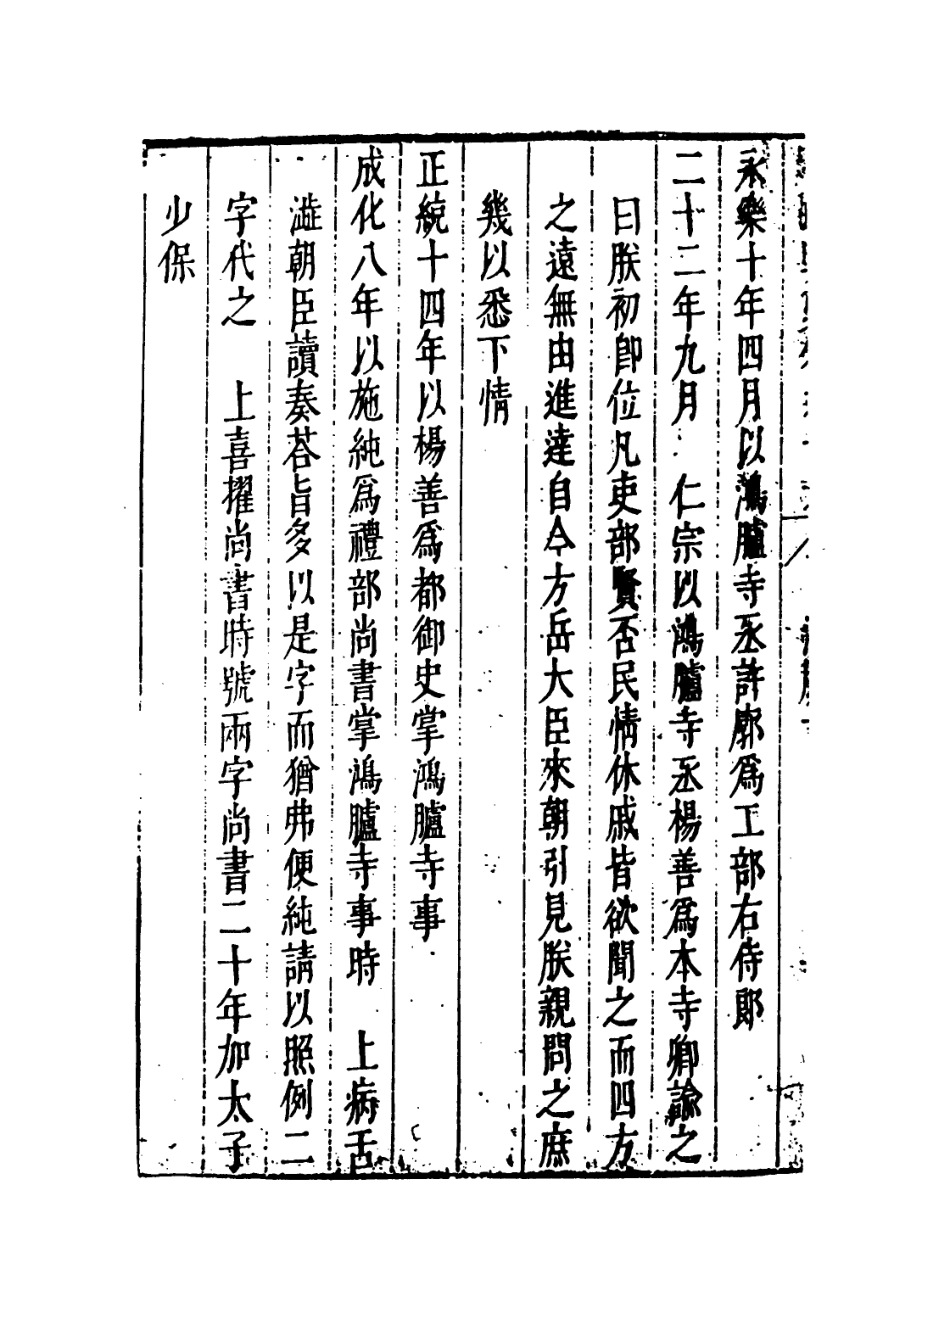 永樂十年四月以鴻臚寺丞許廓爲工部右侍郎
二十二年九月 仁宗以鴻臚寺丞楊善爲本寺卿諭之
曰朕初卽位凡吏部賢否民情休戚皆欲聞之而四方
之遠無由進達自今方岳大臣來朝引見朕親問之庶
幾以悉下情
正統十四年以楊善爲都御史掌鴻臚寺事
成化八年以施純爲禮部尚書掌鴻臚寺事時 上病舌
澁朝臣讀奏荅旨多以是字而猶弗便純請以照例二
字代之 上喜擢尚書時號兩字尚書二十年加太子
少保